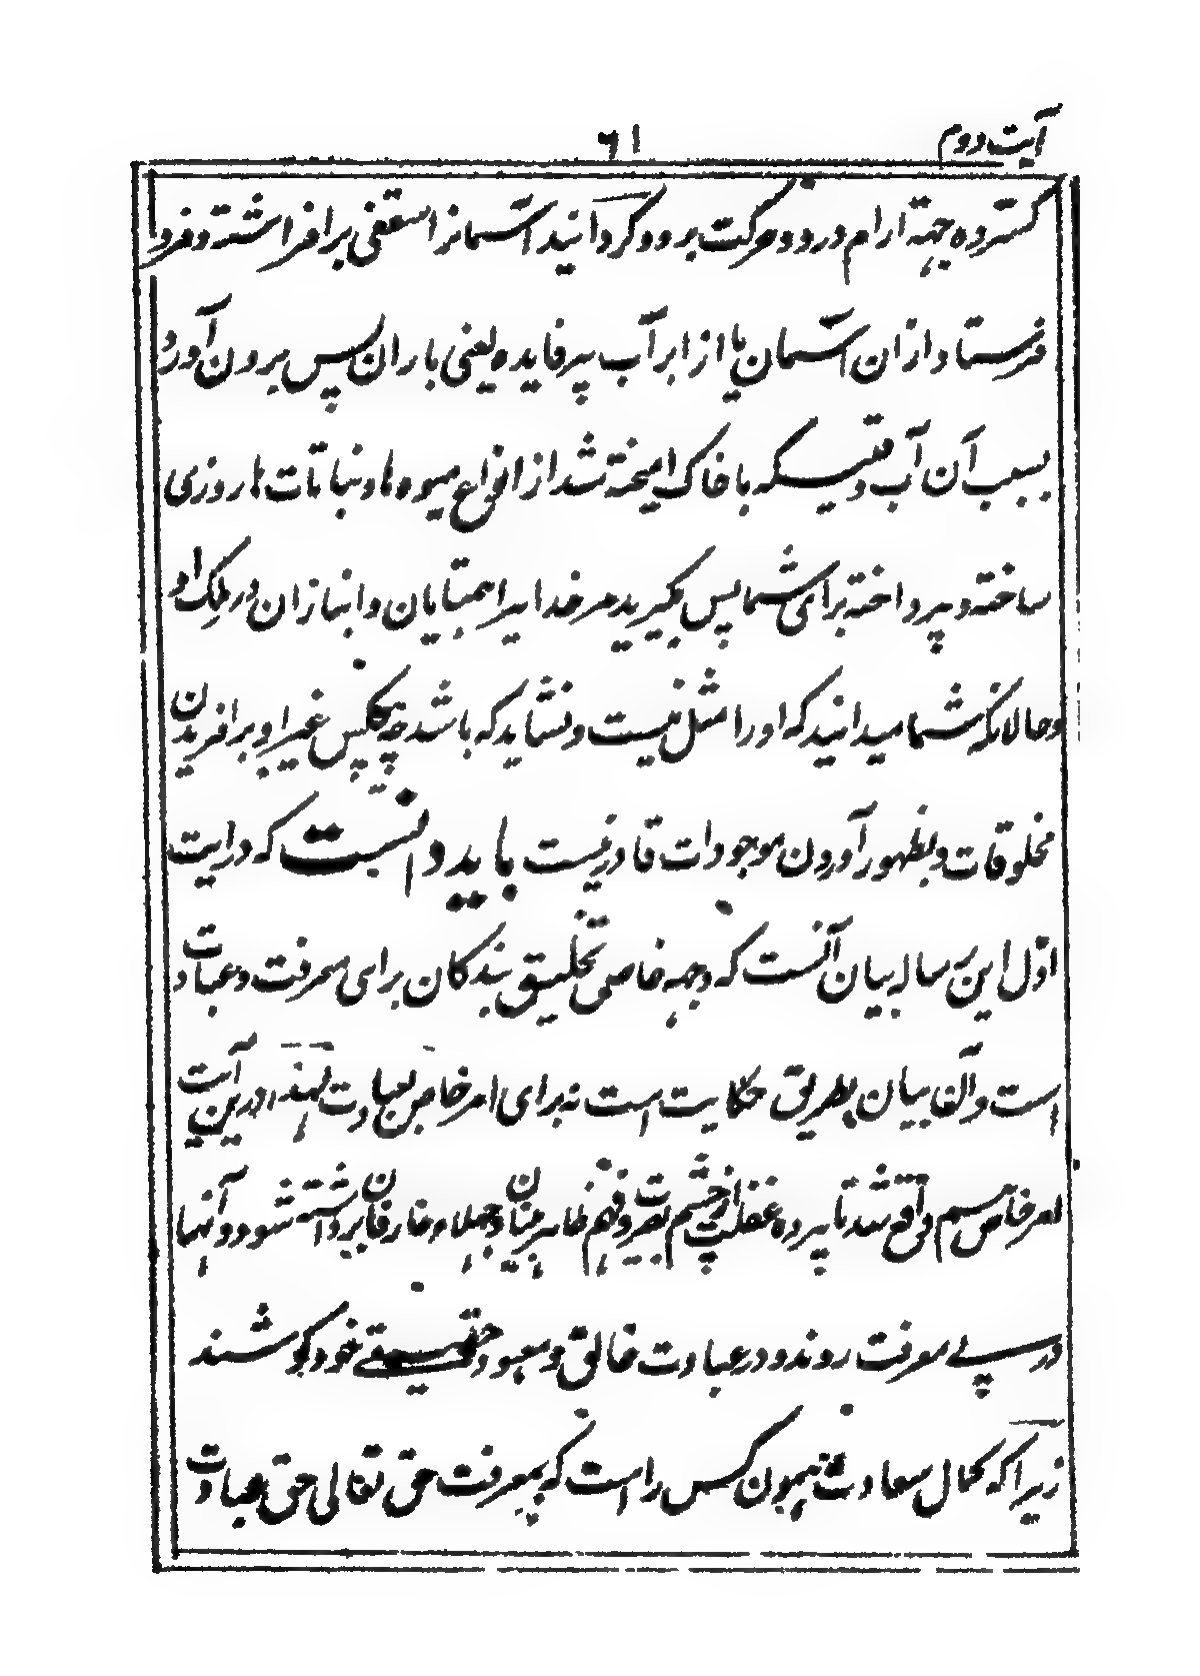 آیت دوم ۶۱
گسترده جهة ارام در دو حرکت برو و گردانید آسمانرا سقفی برافراشته و فرود
فرستاد از ان آسمان یا از ابر آب پر فایده یعنی باران پس برون آورد
بسبب آن آب وقتیکه با خاک امیخته شد از انواع میوه ها و نباتات ها روزی
ساخته و پرداخته برای شما پس مگیرید مر خدایرا همتایان و انبازان در ملک او
و حالانکه شما میدانید که او را مثل نیست و نشاید که باشد چه هیچکس غیر او بر افریدن
مخلوقات و بظهور آوردن موجودات قادر نیست باید دانست که در ایت
اول این رساله بیان آنست که وجه خاص تخلیق بندگان برای معرفت و عبادت
است و آنفا بیان بطریق حکایت است نه برای امر خاص بعبادت لهذا درین آیت
امر خاص هم واقع شد تا پرده غفلت از چشم بصیرت و فهم ظاهر بینان و جهلاء و عارفان برداشته شود و آنها
در پے معرفت روند و در عبادت خالق و معبود حقیقے خود کوشند
زیرا که کمال سعادت همون کس راست که بمعرفت حق تعالی حق عبادت